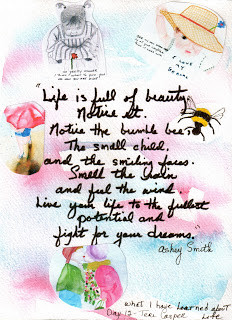 "Life is full of beauty.
Notice it.
Notice the bumble bee
The small child,
and the smiling faces.
Smell the rain
and feel the wind.
Live your life to the fullest
potential and
fight for your dreams."
Ashey Smith
What I have learned about
Day 12 - Teri Casper Life